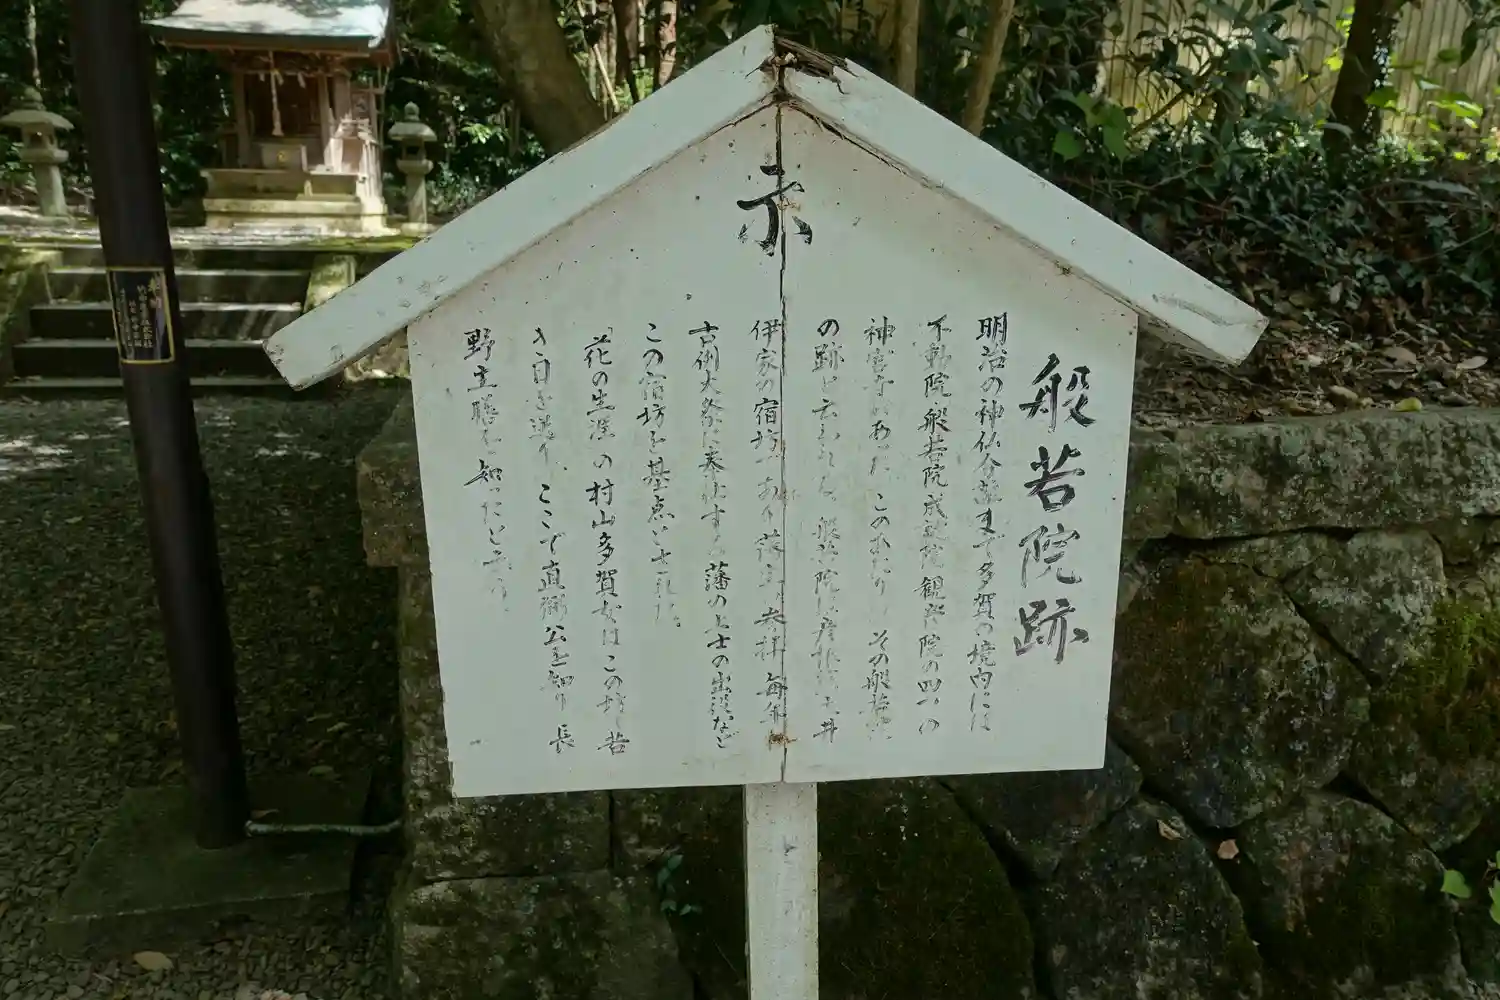 赤
般若院跡
明治の神仏分離まで多賀の境内には
不動院般若院成就院観音院の四つの
神宮寺があった このあたりは その般若院
の跡と云われる 般若院は彦根藩主井
伊家の宿坊であり藩主の参拝 毎年
古例大祭に奉仕する藩の上士の出役など
この宿坊を基点とされた。
「花の生涯」の村山多賀女はこの坊で若
き日を送り ここで直弼公を知り 長
野主膳を知ったと云う。